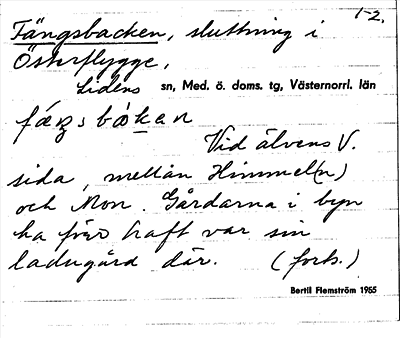 1-2.
Fängsbacken, sluttning i
Österflygge,
Lidens sn, Med. ö. doms. tg, Västernorrl. län
Vid älvens V.
sida, mellan Himmel(n)
och Mon. Gårdarna i byn
ha förr haft var sin
ladugård där. (forts.)
Bertil Flemström 1965